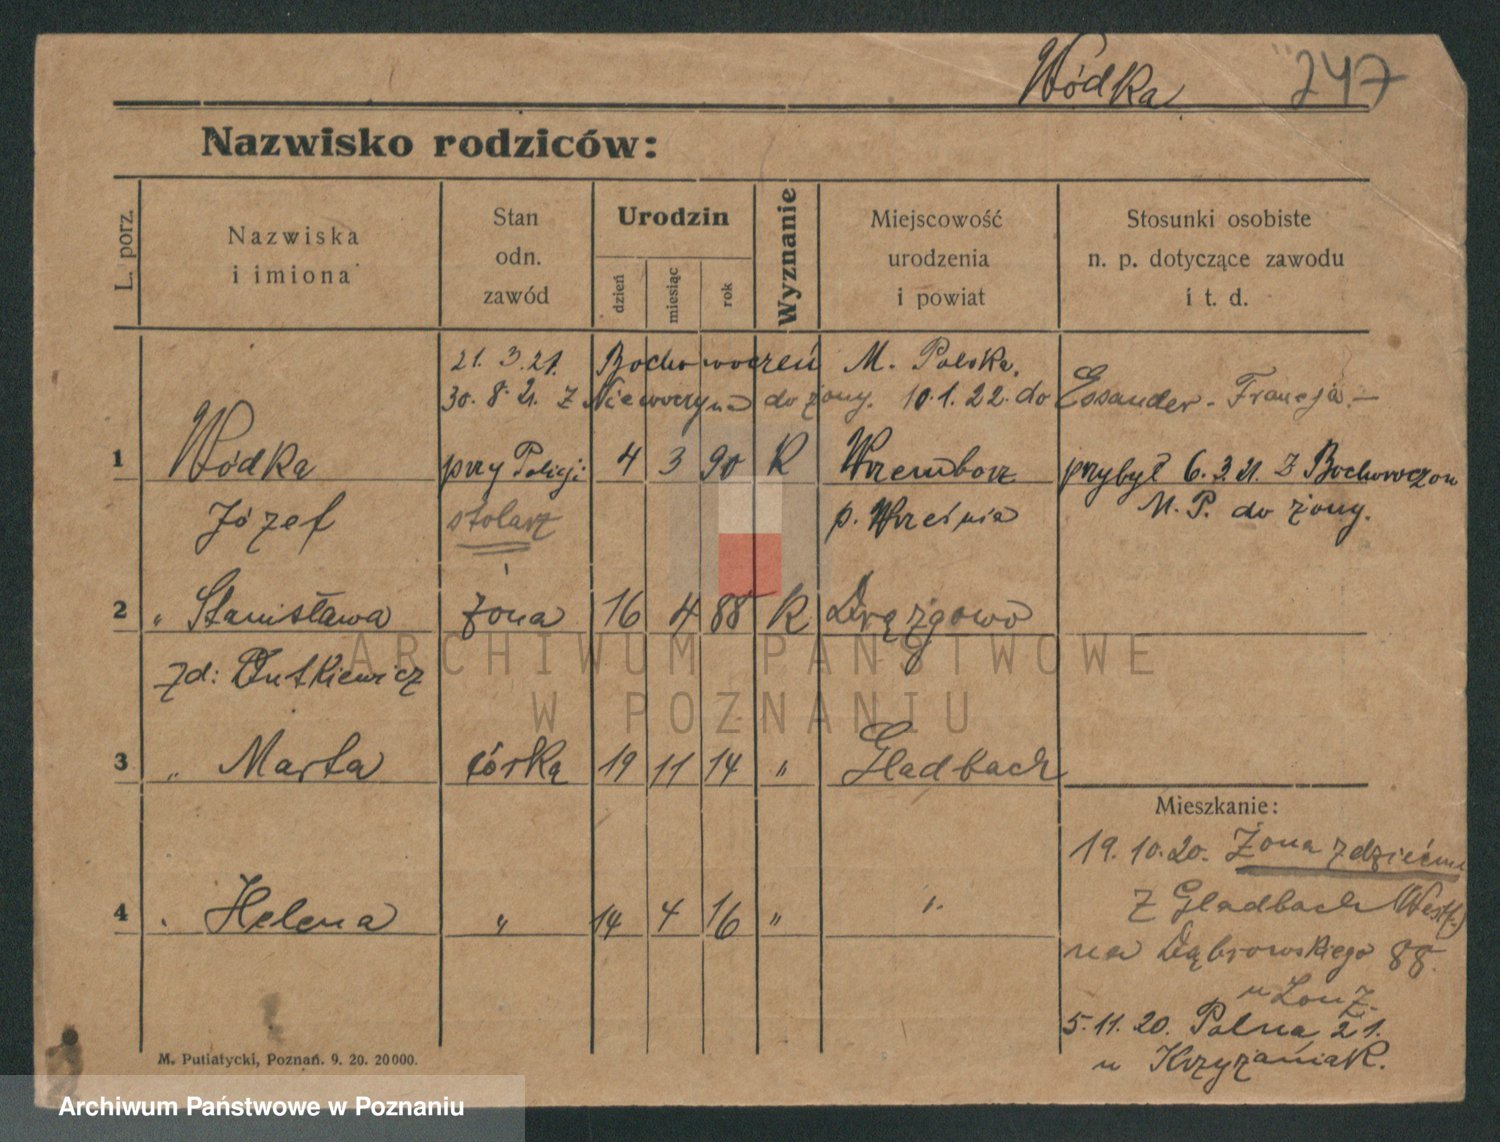 Wódka 247
Nazwisko rodziców:
L. porz.
Nazwiska
i imiona
Stan
odn.
zawód
Urodzin
dzień
miesiąc
rok
Wyznanie
Miejscowość
urodzenia
i powiat
Stosunki osobiste
n. p. dotyczące zawodu
i t. d.
21. 3. 21. M. Polska.
30. 8. 21. z do żony. 10.1.22. do Essander - Francja.-
1 Wódka przy Policji 4 3 90 K Wremborz przybył 6.3.21. z
Józef stolarz p. Września M. P. do żony.
2 " Stanisława żona 16 4 88 K Drązgowo
zd: Dutkiewicz
3 " Marta córka 19 11 14 " Gladbach
Mieszkanie:
19.10.20. Żona z dziećmi
4 " Helena " 14 4 16 " "
z Gladbach (Westf.)
na Dąbrowskiego 88.
u
5.11.20. Polna 21.
u Krzyżaniak.
M. Putiatycki, Poznań. 9. 20. 20000.
ARCHIWUM PAŃSTWOWE
W POZNANIU
Archiwum Państwowe w Poznaniu